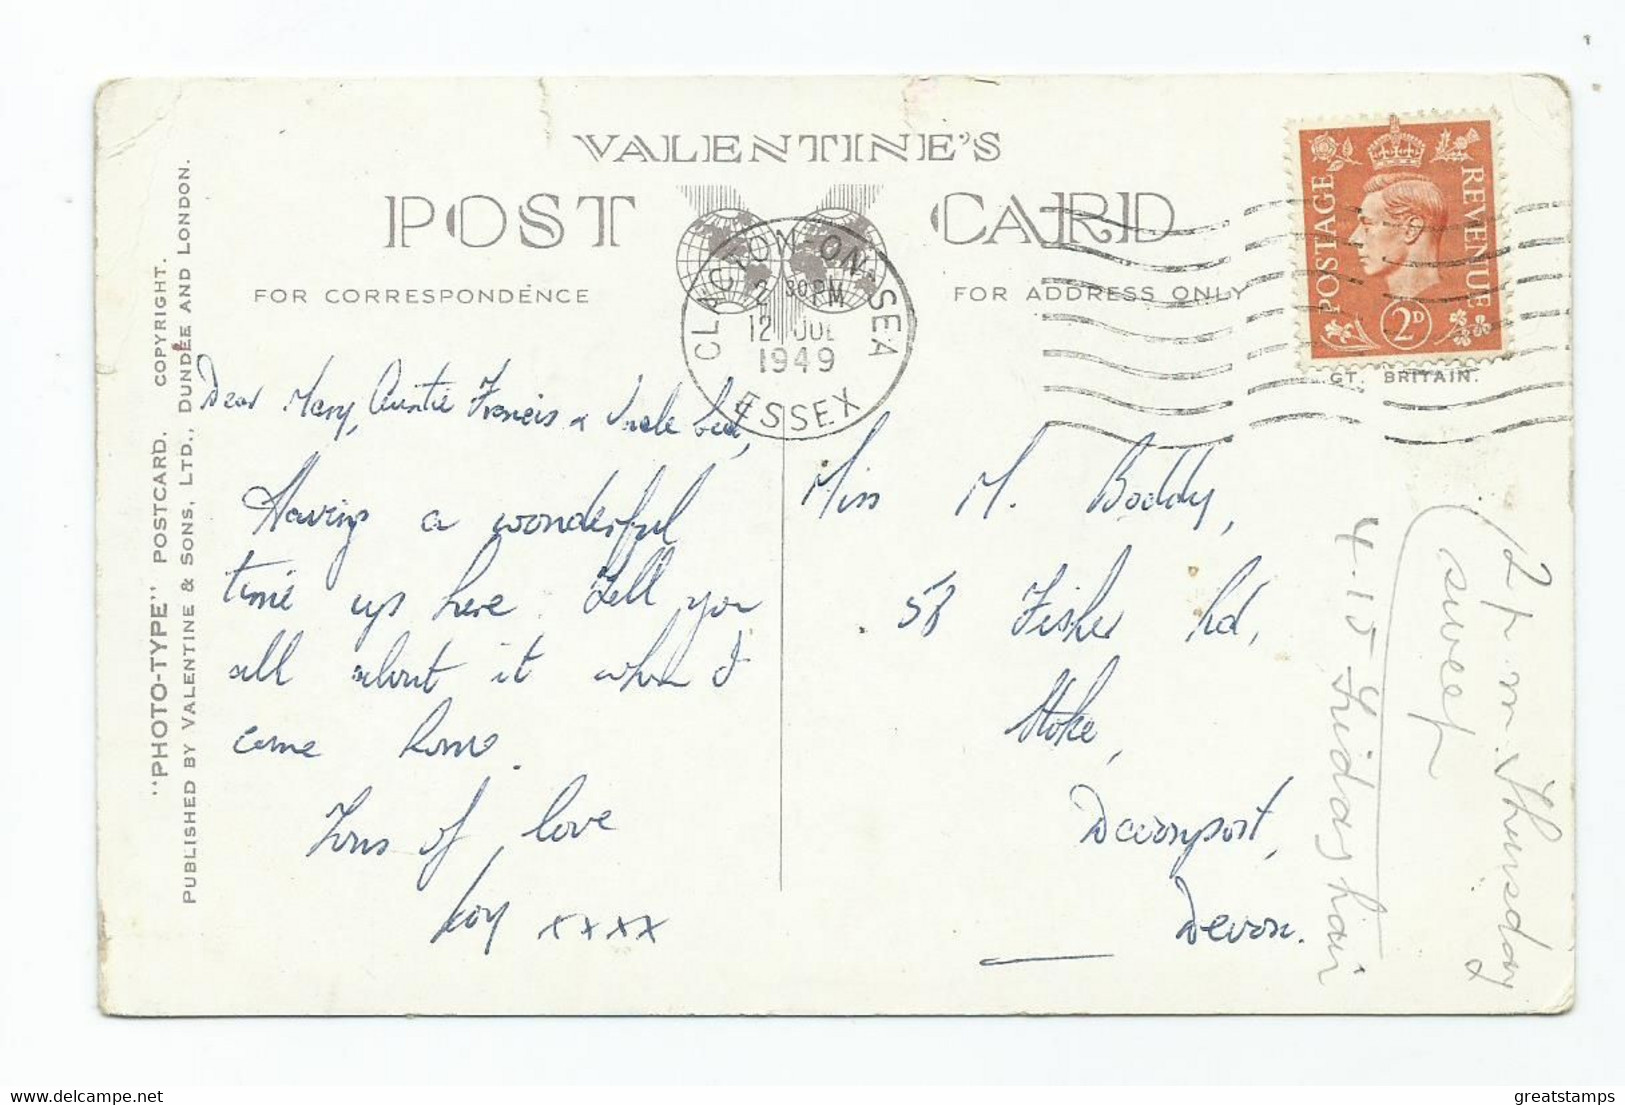 VALENTINE'S
POST CARD
FOR CORRESPONDENCE
FOR ADDRESS ONLY
"PHOTO-TYPE" POSTCARD. COPYRIGHT.
PUBLISHED BY VALENTINE & SONS, LTD., DUNDEE AND LONDON.
CLACTON-ON-SEA
2 30 PM
12 JUL
1949
ESSEX
POSTAGE REVENUE
2D
GT. BRITAIN.
Dear Mary, Auntie Francis & Uncle
Having a wonderful
time up here. Tell you
all about it when I
come home.
Tons of love
Roy xxxx
Miss M. Boddy,
58 Fisher Rd,
Stoke,
Devonport,
Devon.
2 p m. Thursday
sweep
4.15 Friday hair
delcampe.net
greatstamps